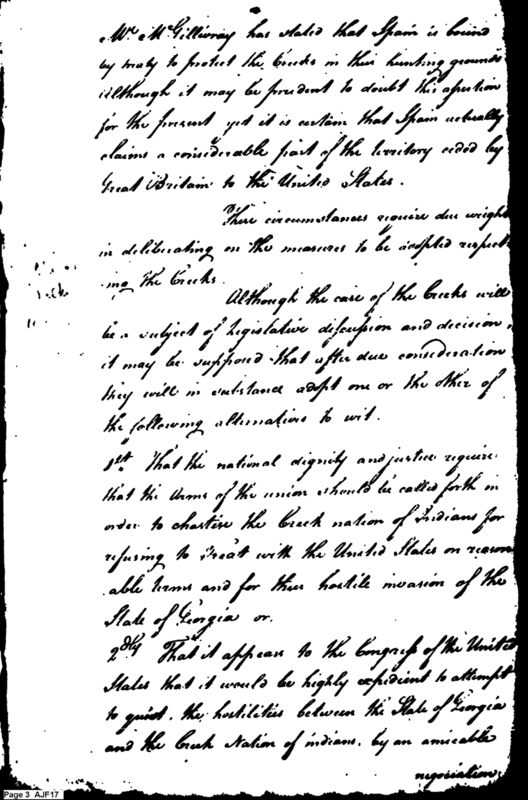 Mr. McGillivray has stated that Spain is bound
by treaty to protect the Creeks in their hunting grounds
Although it may be prudent to doubt this assertion
for the present yet it is certain that Spain actually
claims a considerable part of the territory ceded by
Great Britain to the United States.
These circumstances require due weight
in deliberating on the measures to be adopted respect
ing the Creeks.
Although the case of the Creeks will
be a subject of Legislative discussion and decision,
it may be supposed that after due consideration
they will in substance adopt one or the other of
the following alternatives to wit.
1st That the national dignity and justice require
that the Arms of the union should be called forth in
order to chastise the Creek nation of Indians for
refusing to treat with the United States on reason
able terms and for their hostile invasion of the
State of Georgia or.
2dly That it appears to the Congress of the United
States that it would be highly expedient to attempt
to quiet, the hostilities between the State of Georgia
and the Creek Nation of indians, by an amicable
negociation;
Page 3 AJF17